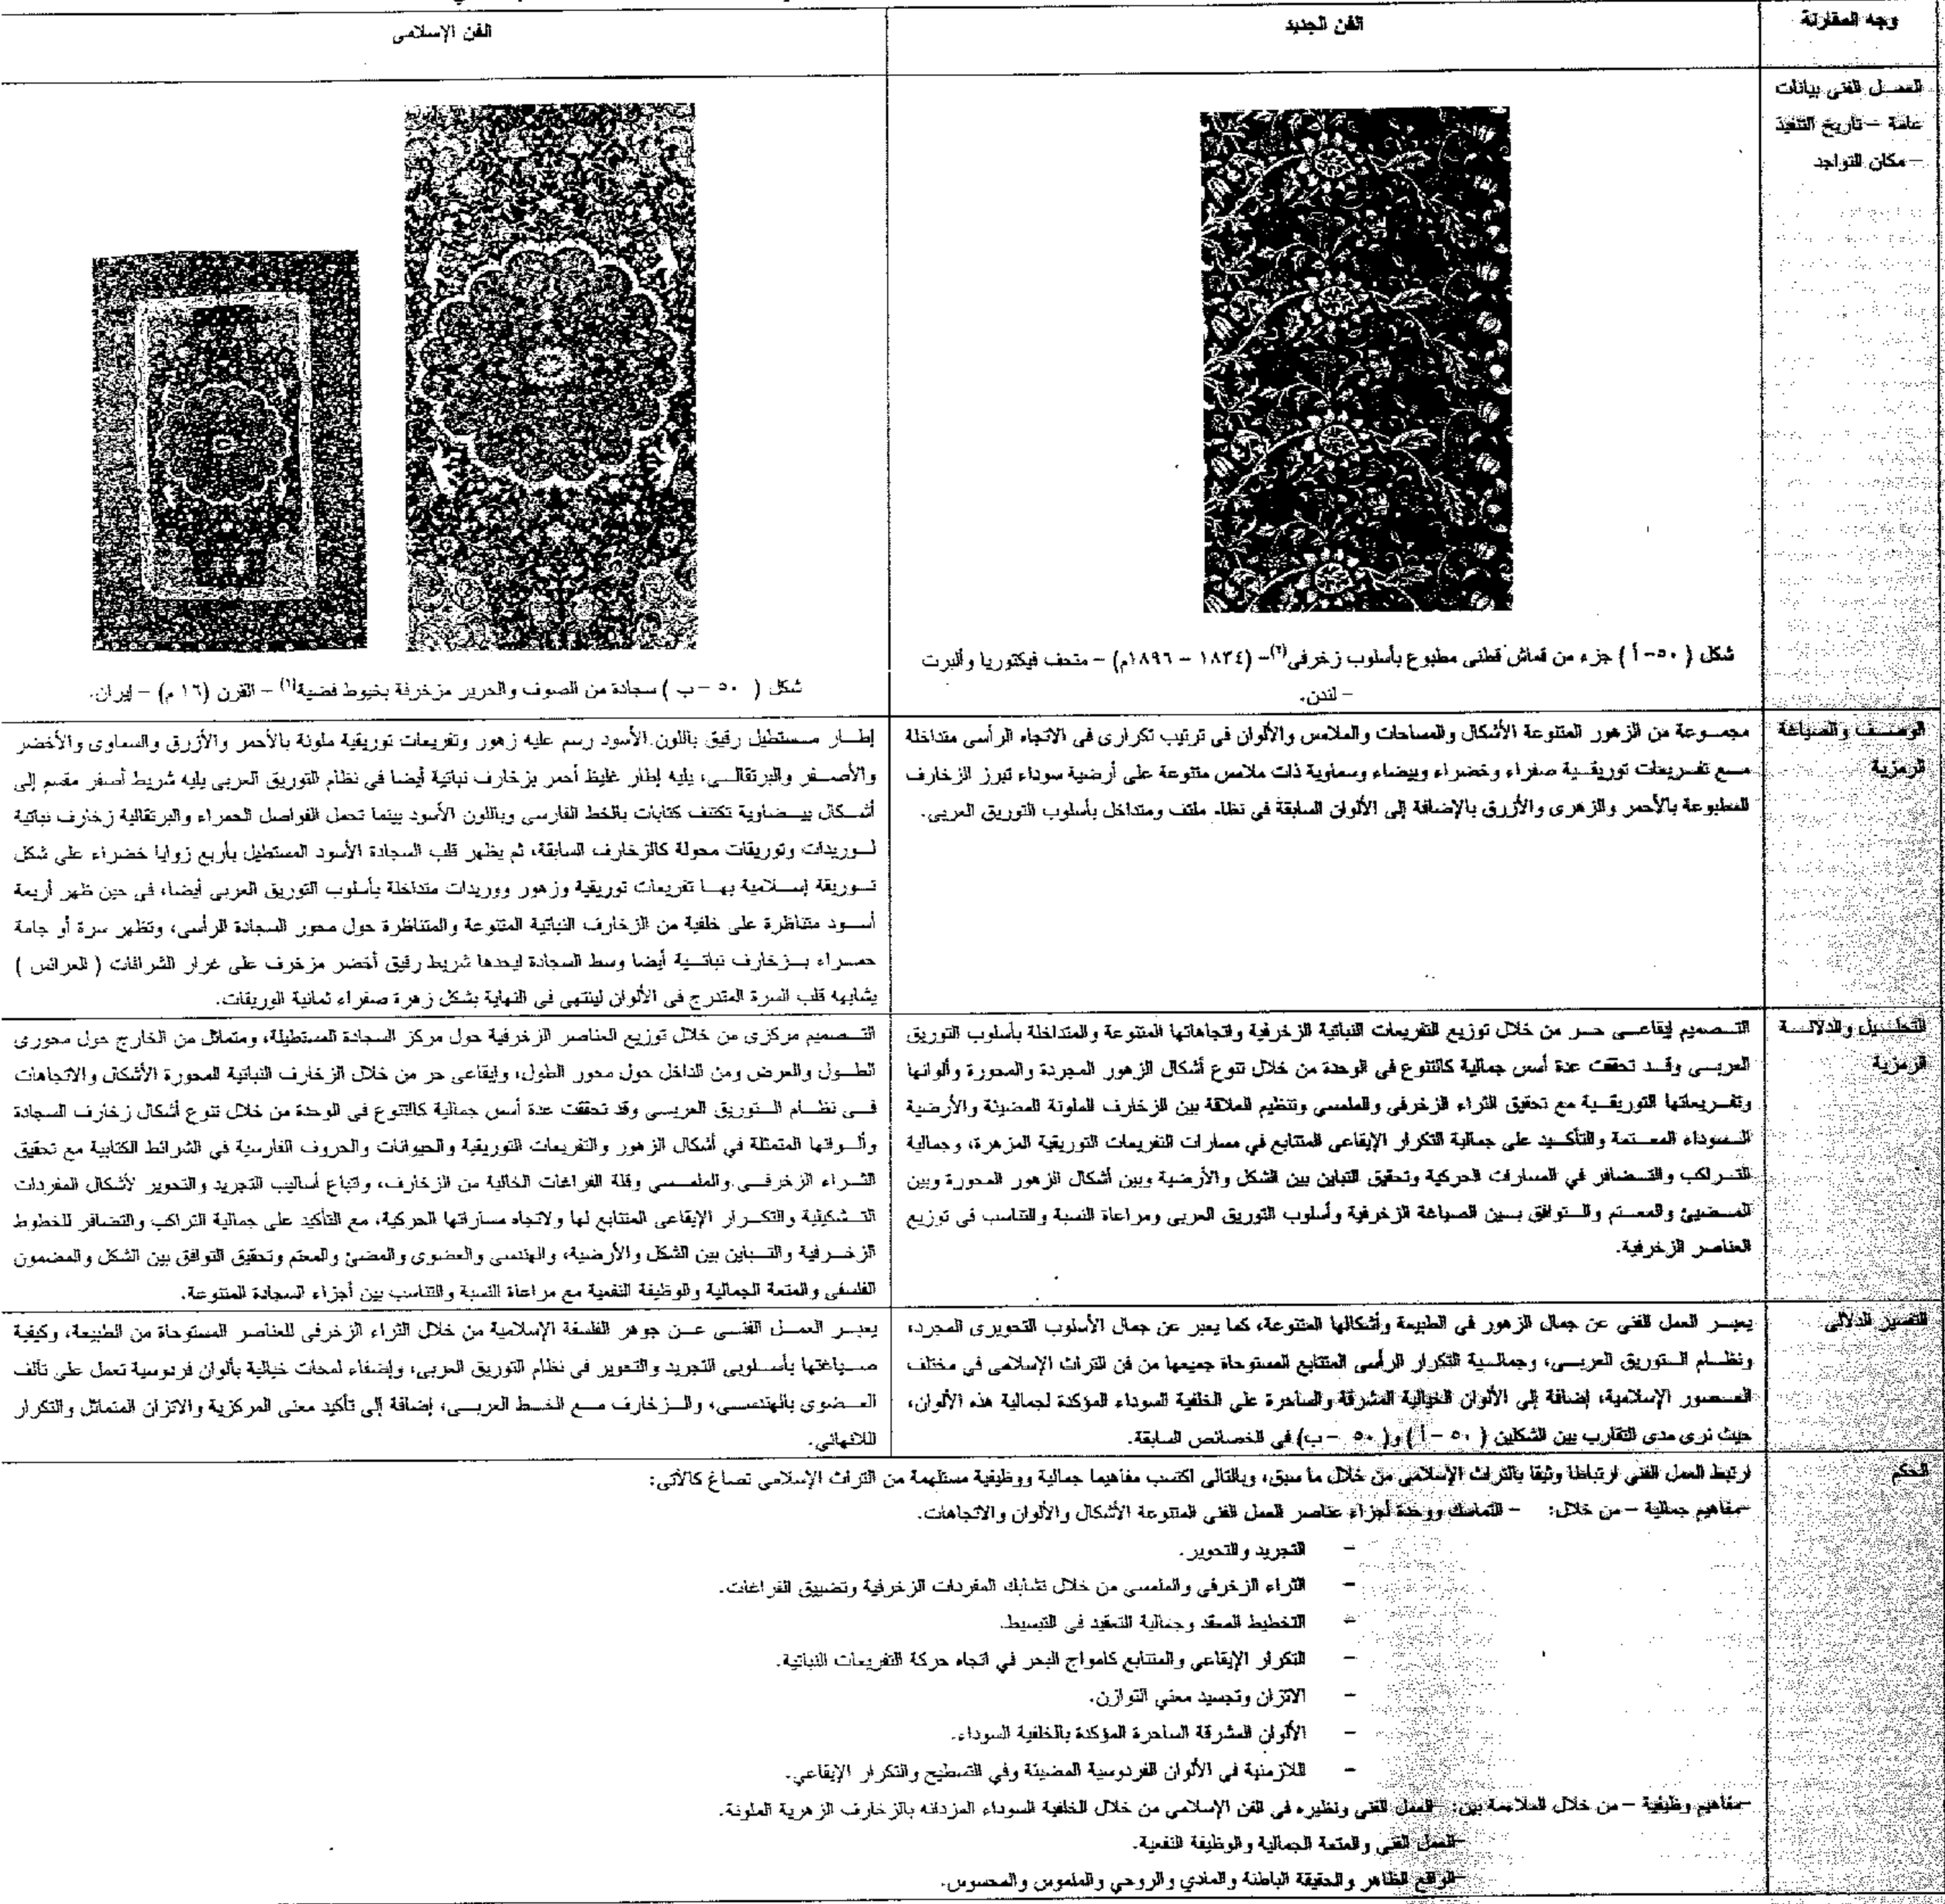 وجه المقارنة
الفن الجديد
الفن الإسلامى
العمــل الفنى بيانات
عامة – تاريخ التنفيذ
– مكان التواجد
شكل ( ٥٠- أ ) جزء من قماش قطنى مطبوع بأسلوب زخرفى(٢)– (١٨٣٤ – ١٨٩٦م) – متحف فيكتوريا وألبرت
– لندن.
شكل ( ٥٠ –ب ) سجادة من الصوف والحرير مزخرفة بخيوط فضية(١) – القرن (١٦ م) – إيران.
الوصــف والصياغة
الرمزية
مجمــوعة من الزهور المتنوعة الأشكال والمساحات والملامس والألوان في ترتيب تكرارى فى الاتجاه الرأسى متداخلة
مــع تفــريعات توريقــية صفراء وخضراء وبيضاء وسماوية ذات ملامس متنوعة على أرضية سوداء تبرز الزخارف
المطبوعة بالأحمر والزهرى والأزرق بالإضافة إلى الألوان السابقة في نظام ملتف ومتداخل بأسلوب التوريق العربى.
إطــار مــستطيل رقيق باللون الأسود رسم عليه زهور وتفريعات توريقية ملونة بالأحمر والأزرق والسماوى والأخضر
والأصــفر والبرتقالــي، يليه إطار غليظ أحمر بزخارف نباتية أيضا في نظام التوريق العربى يليه شريط أصفر مقسم إلى
أشــكال بيــضاوية تكتنف كتابات بالخط الفارسى وباللون الأسود بينما تحمل الفواصل الحمراء والبرتقالية زخارف نباتية
لــوريدات وتوريقات محولة كالزخارف السابقة، ثم يظهر قلب السجادة الأسود المستطيل بأربع زوايا خضراء على شكل
تــوريقة إســلامية بهــا تفريعات توريقية وزهور ووريدات متداخلة بأسلوب التوريق العربى أيضا، فى حين ظهر أربعة
أســود متناظرة على خلفية من الزخارف النباتية المتنوعة والمتناظرة حول محور السجادة الرأسى، وتظهر سرة أو جامة
حمــراء بــزخارف نباتــية أيضا وسط السجادة ليحدها شريط رقيق أخضر مزخرف على غرار الشرافات ( العرائس )
يشابهه قلب السرة المتدرج فى الألوان لينتهى فى النهاية بشكل زهرة صفراء ثمانية الوريقات.
التحلــيل والدلالــة
الرمزية
التــصميم إيقاعــى حــر من خلال توزيع التفريعات النباتية الزخرفية واتجاهاتها المتنوعة والمتداخلة بأسلوب التوريق
العربــى وقــد تحققت عدة أسس جمالية كالتنوع فى الوحدة من خلال تنوع أشكال الزهور المجردة والمحورة وألوانها
وتفــريعاتها التوريقــية مع تحقيق الثراء الزخرفى والملمسى وتنظيم العلاقة بين الزخارف الملونة المضيئة والأرضية
الــسوداء المعــتمة والتأكــيد على جمالية التكرار الإيقاعى المتتابع في مسارات التفريعات التوريقية المزهرة، وجمالية
التــراكب والتــضافر في المسارات الحركية وتحقيق التباين بين الشكل والأرضية وبين أشكال الزهور المحورة وبين
المــضيئ والمعــتم والــتوافق بــين الصياغة الزخرفية وأسلوب التوريق العربى ومراعاة النسبة والتناسب فى توزيع
العناصر الزخرفية.
التــصميم مركزى من خلال توزيع العناصر الزخرفية حول مركز السجادة المستطيلة، ومتماثل من الخارج حول محورى
الطــول والعرض ومن الداخل حول محور الطول، وإيقاعى حر من خلال الزخارف النباتية المحورة الأشكال والاتجاهات
فــى نظــام الــتوريق العربــى وقد تحققت عدة أسس جمالية كالتنوع في الوحدة من خلال تنوع أشكال زخارف السجادة
وألــوانها المتمثلة في أشكال الزهور والتفريعات التوريقية والحيوانات والحروف الفارسية في الشرائط الكتابية مع تحقيق
الثــراء الزخرفــى والملمــسي وقلة الفراغات الخالية من الزخارف، واتباع أساليب التجريد والتحوير لأشكال المفردات
التــشكيلية والتكــرار الإيقاعى المتتابع لها ولاتجاه مساراتها الحركية، مع التأكيد على جمالية التراكب والتضافر للخطوط
الزخــرفية والتــباين بين الشكل والأرضية، والهندسى والعضوى والمضئ والمعتم وتحقيق التوافق بين الشكل والمضمون
الفلسفى والمتعة الجمالية والوظيفة النفعية مع مراعاة النسبة والتناسب بين أجزاء السجادة المتنوعة.
التفسير الدلالى
يعبــر العمل الفنى عن جمال الزهور في الطبيعة وأشكالها المتنوعة، كما يعبر عن جمال الأسلوب التحويرى المجرد،
ونظــام الــتوريق العربــى، وجمالــية التكرار الرأسى المتتابع المستوحاة جميعها من فن التراث الإسلامى في مختلف
العــصور الإسلامية، إضافة إلى الألوان الخيالية المشرقة والساحرة على الخلفية السوداء المؤكدة لجمالية هذه الألوان،
حيث نرى مدى التقارب بين الشكلين ( ٥٠ –أ ) و( ٥٠ –ب) فى الخصائص السابقة.
يعبــر العمــل الفنــى عــن جوهر الفلسفة الإسلامية من خلال الثراء الزخرفى للعناصر المستوحاة من الطبيعة، وكيفية
صــياغتها بأســلوبى التجريد والتحوير فى نظام التوريق العربى، وإضفاء لمحات خيالية بألوان فردوسية تعمل على تآلف
العــضوى بالهندســى، والــزخارف مــع الخــط العربــى، إضافة إلى تأكيد معنى المركزية والاتزان المتماثل والتكرار
اللانهائى.
الحكم
ارتبط العمل الفنى ارتباطا وثيقا بالتراث الإسلامى من خلال ما سبق، وبالتالى اكتسب مفاهيما جمالية ووظيفية مستلهمة من التراث الإسلامى تصاغ كالآتى:
–مفاهيم جمالية – من خلال: – التماسك ووحدة أجزاء عناصر العمل الفنى المتنوعة الأشكال والألوان والاتجاهات.
– التجريد والتحوير.
– الثراء الزخرفى والملمسى من خلال تشابك المفردات الزخرفية وتضييق الفراغات.
– التخطيط المعقد وجمالية التعقيد فى التبسيط.
– التكرار الإيقاعي والمتتابع كامواج البحر في اتجاه حركة التفريعات النباتية.
– الاتزان وتجسيد معني التوازن.
– الألوان المشرقة الساحرة المؤكدة بالخلفية السوداء.
– اللازمنية في الألوان الفردوسية المضيئة وفي التسطيح والتكرار الإيقاعي.
–مفاهيم وظيفية – من خلال الملاءمة بين: –العمل الفنى ونظيره فى الفن الإسلامي من خلال الخلفية السوداء المزدانه بالزخارف الزهرية الملونة.
–العمل الفنى والمتعة الجمالية والوظيفة النفعية.
–الواقع الظاهر والحقيقة الباطنة والمادي والروحي والملموس والمحسوس.